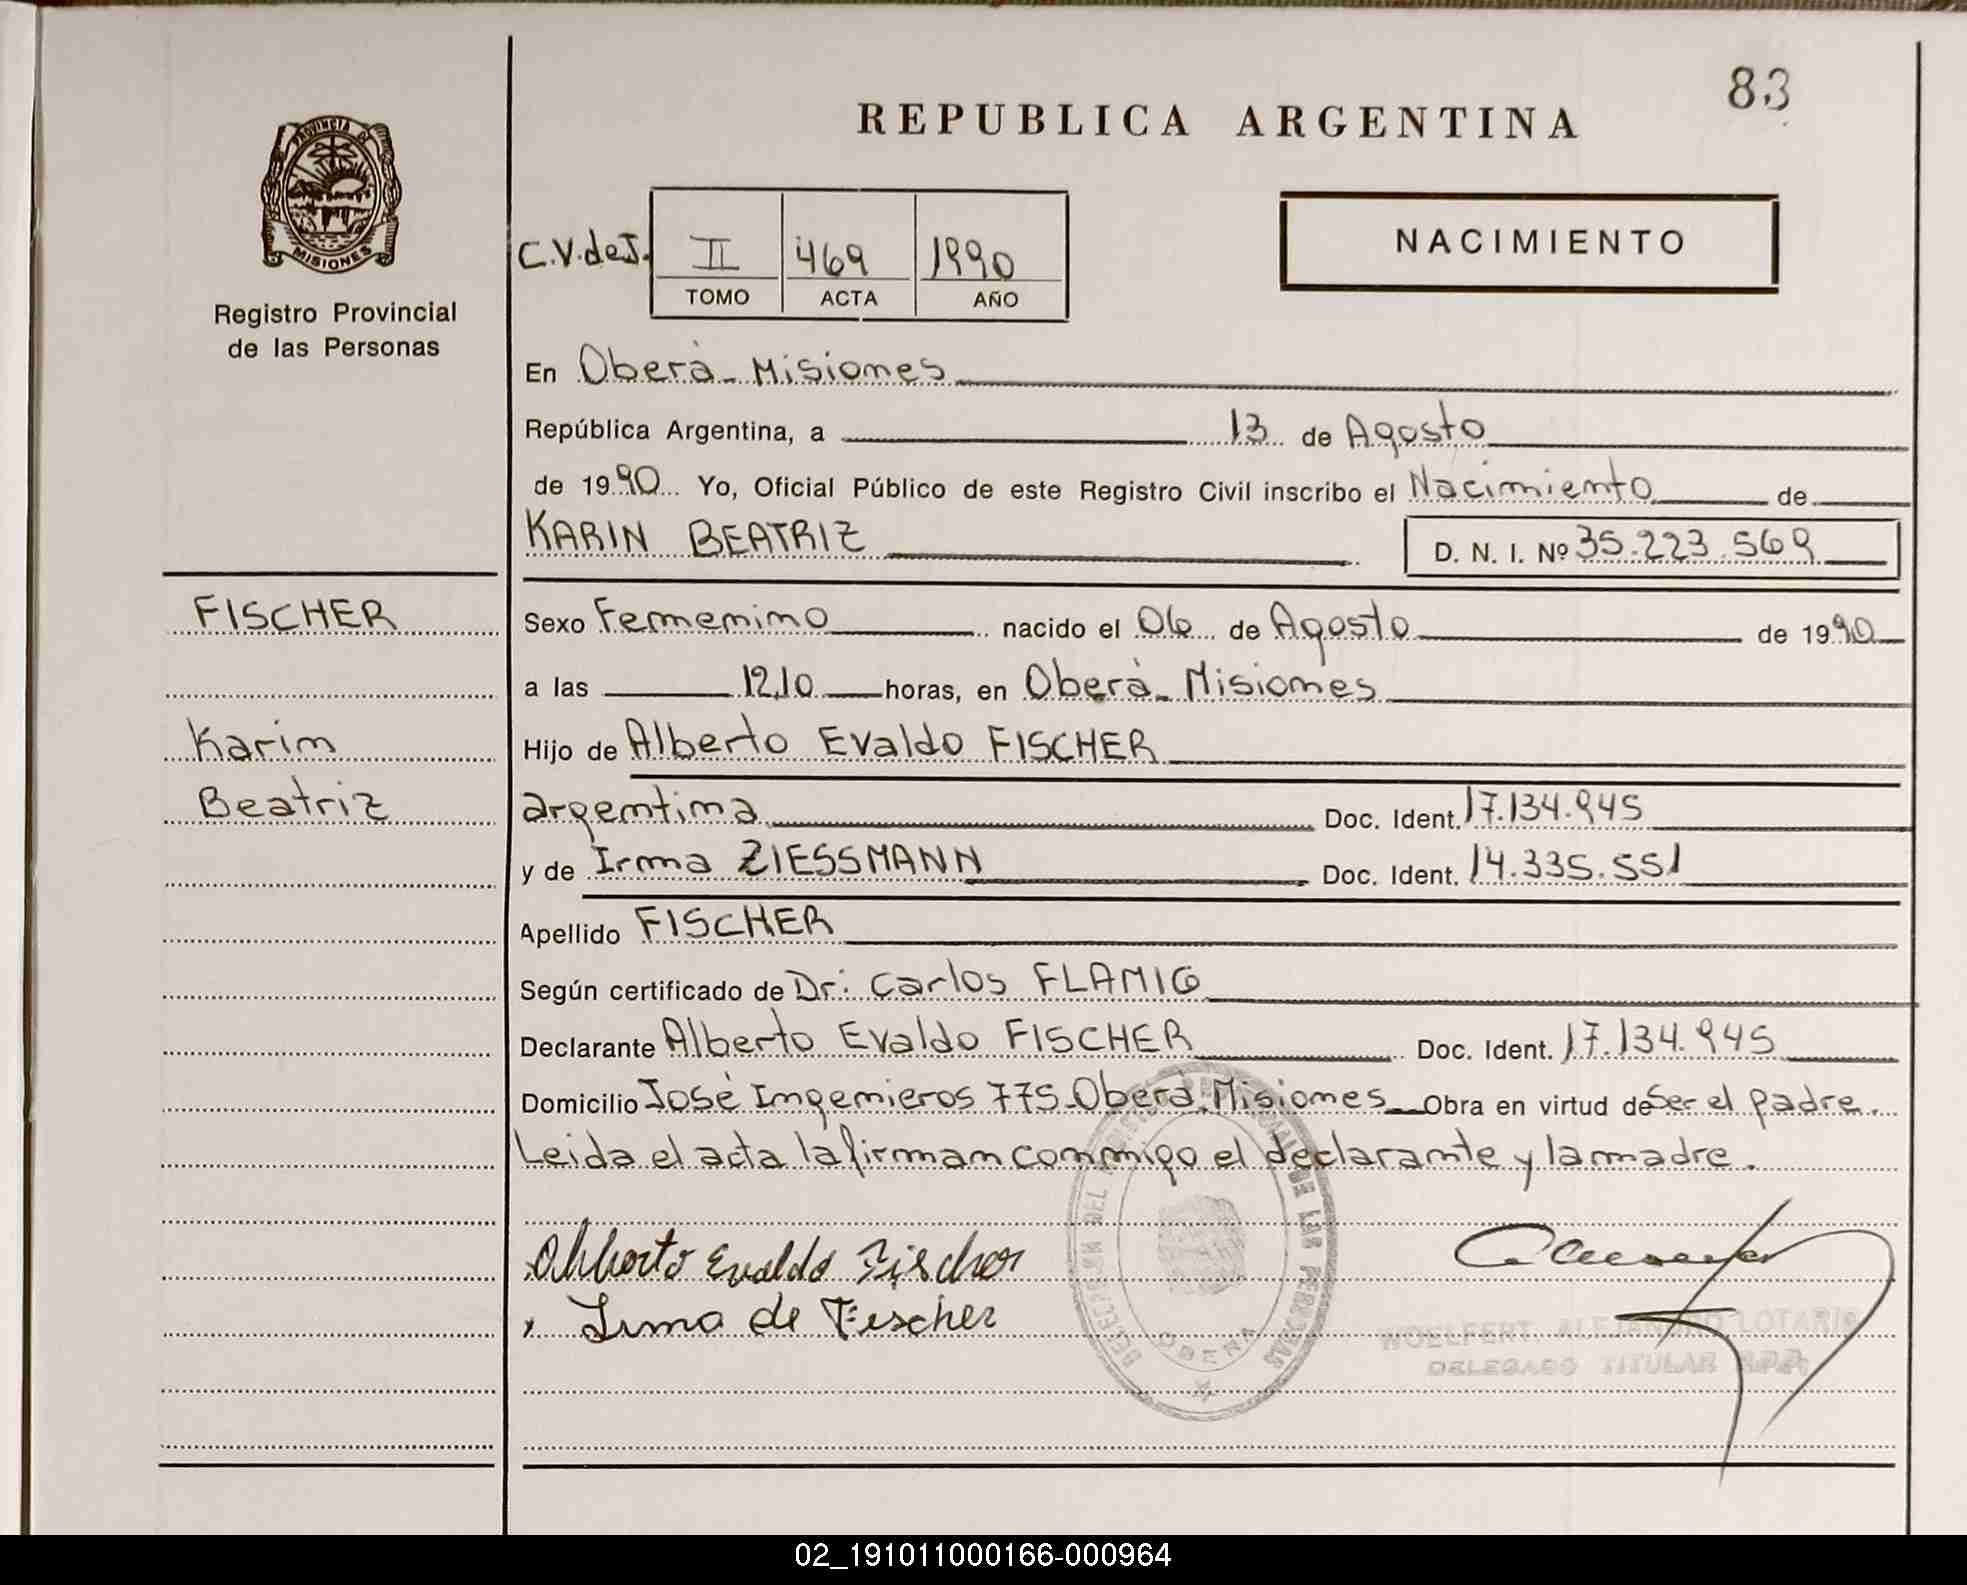 83
REPUBLICA ARGENTINA
PROVINCIA DE
MISIONES
Registro Provincial
de las Personas
NACIMIENTO
C.V.deJ. II 469 1990
TOMO ACTA AÑO
En Oberà - Misiones
República Argentina, a 13 de Agosto
de 1990 Yo, Oficial Público de este Registro Civil inscribo el Nacimiento de
KARIN BEATRIZ D. N. I. Nº 35.223.569
FISCHER
Sexo Femenino nacido el 06 de Agosto de 1990
a las 12,10 horas, en Oberà - Misiones
Karin
Hijo de Alberto Evaldo FISCHER
Beatriz
argentina Doc. Ident. 17.134.945
y de Irma ZIESSMANN Doc. Ident. 14.335.551
Apellido FISCHER
Según certificado de Dr: Carlos FLAMIG
Declarante Alberto Evaldo FISCHER Doc. Ident. 17.134.945
Domicilio José Ingenieros 775 - Oberà, Misiones Obra en virtud de Ser el padre.
Leida el acta la firman conmigo el declarante y la madre.
Alberto Evaldo Fischer
Irma de Fischer
OBERA
WOELFERT, ALEJANDRO LOTARIO
DELEGADO TITULAR RPP
02_191011000166-000964